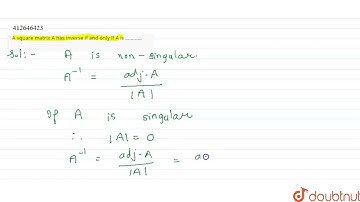 412646423
A square matrix A has inverse if and only if A is ............
Sol:- A is non-singular.
A⁻¹ = adj·A / |A|
If A is singular
∴ |A| = 0
A⁻¹ = adj·A / |A| = a
doubtnut